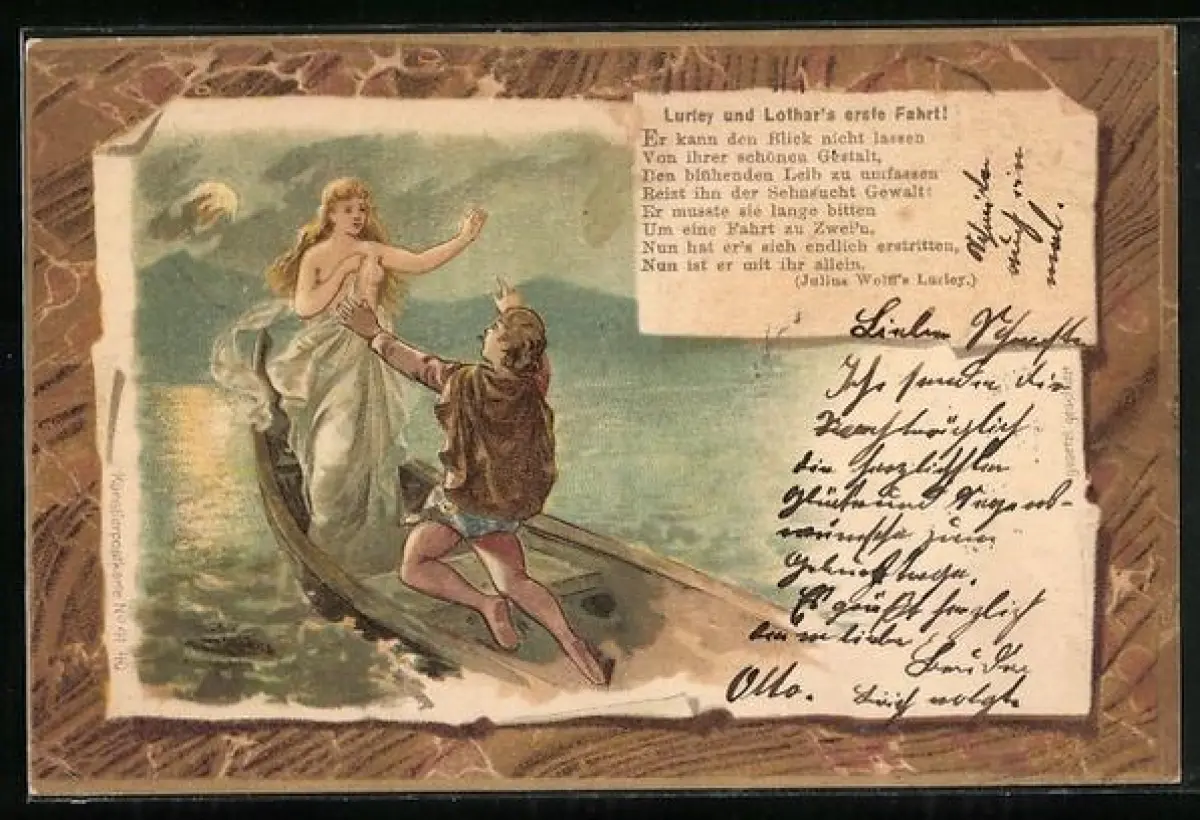 Lurley und Lothar's erste Fahrt!
Er kann den Blick nicht lassen
Von ihrer schönen Gestalt,
Den blühenden Leib zu umfassen
Reizt ihn der Sehnsucht Gewalt:
Er musste sie lange bitten
Um eine Fahrt zu Zwei'n.
Nun hat er's sich endlich erstritten,
Nun ist er mit ihr allein.
(Julius Wolff's Lurley.)
Schreibe
auch ein
mal.
Liebe
Ich sende dir
Nachträglich
die herzlichsten
Glück und Segens-
wünsche zum
Geburtstage.
Es grüßt herzlich
Bruder
Otto.
Künstlerpostkarte No